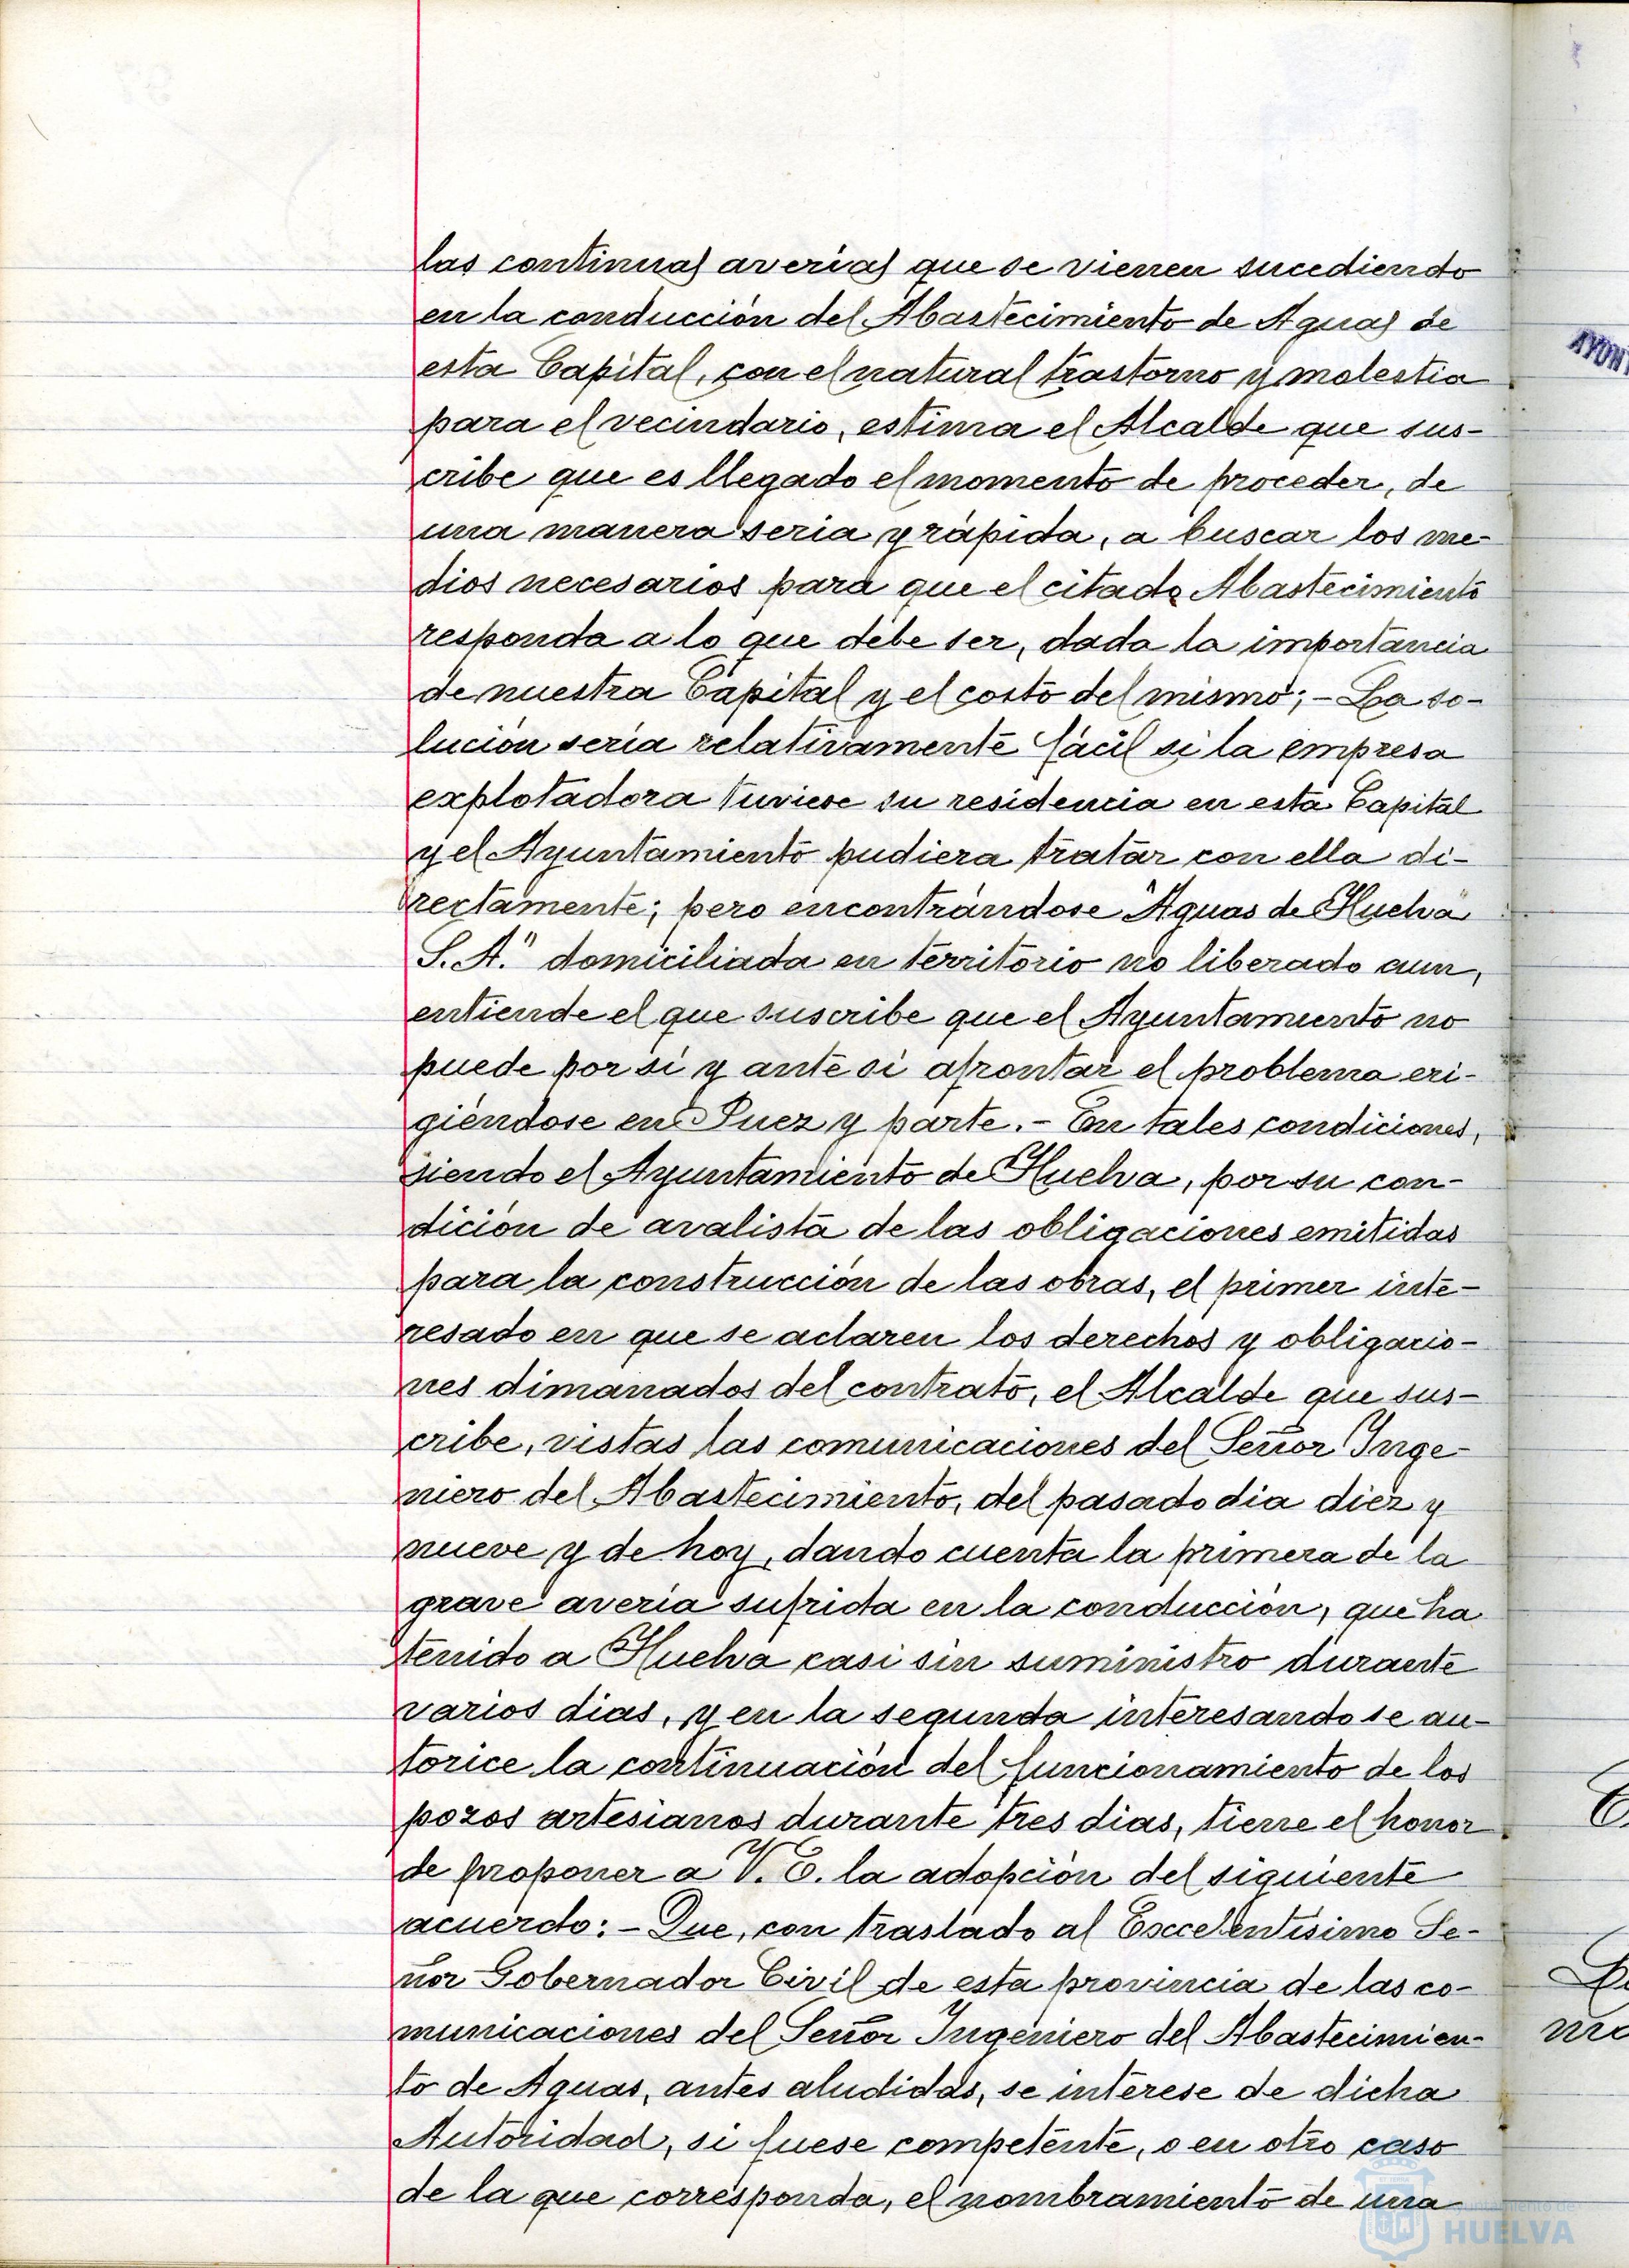 las continuas averias que se vienen sucediendo
en la conducción del Abastecimiento de Aguas de
esta Capital, con el natural trastorno y molestia
para el vecindario, estima el Alcalde que sus-
cribe que es llegado el momento de proceder, de
una manera seria y rápida, a buscar los me-
dios necesarios para que el citado Abastecimiento
responda a lo que debe ser, dada la importancia
de nuestra Capital y el costo del mismo; - La so-
lución sería relativamente fácil si la empresa
explotadora tuviese su residencia en esta Capital
y el Ayuntamiento pudiera tratar con ella di-
rectamente; pero encontrándose "Aguas de Huelva
S. A." domiciliada en territorio no liberado aun,
entiende el que suscribe que el Ayuntamiento no
puede por si y ante si afrontar el problema eri-
giéndose en Juez y parte. - En tales condiciones,
siendo el Ayuntamiento de Huelva, por su con-
dición de avalista de las obligaciones emitidas
para la construcción de las obras, el primer inte-
resado en que se aclaren los derechos y obligacio-
nes dimanados del contrato, el Alcalde que sus-
cribe, vistas las comunicaciones del Señor Inge-
niero del Abastecimiento, del pasado dia diez y
nueve y de hoy, dando cuenta la primera de la
grave avería sufrida en la conducción, que ha
tenido a Huelva casi sin suministro durante
varios dias, y en la segunda interesando se au-
torice la continuación del funcionamiento de los
pozos artesianos durante tres dias, tiene el honor
de proponer a V. E. la adopción del siguiente
acuerdo: - Que, con traslado al Excelentísimo Se-
ñor Gobernador Civil de esta provincia de las co-
municaciones del Señor Ingeniero del Abastecimien-
to de Aguas, antes aludidas, se interese de dicha
Autoridad, si fuese competente, o en otro caso
de la que corresponda, el nombramiento de una
HUELVA